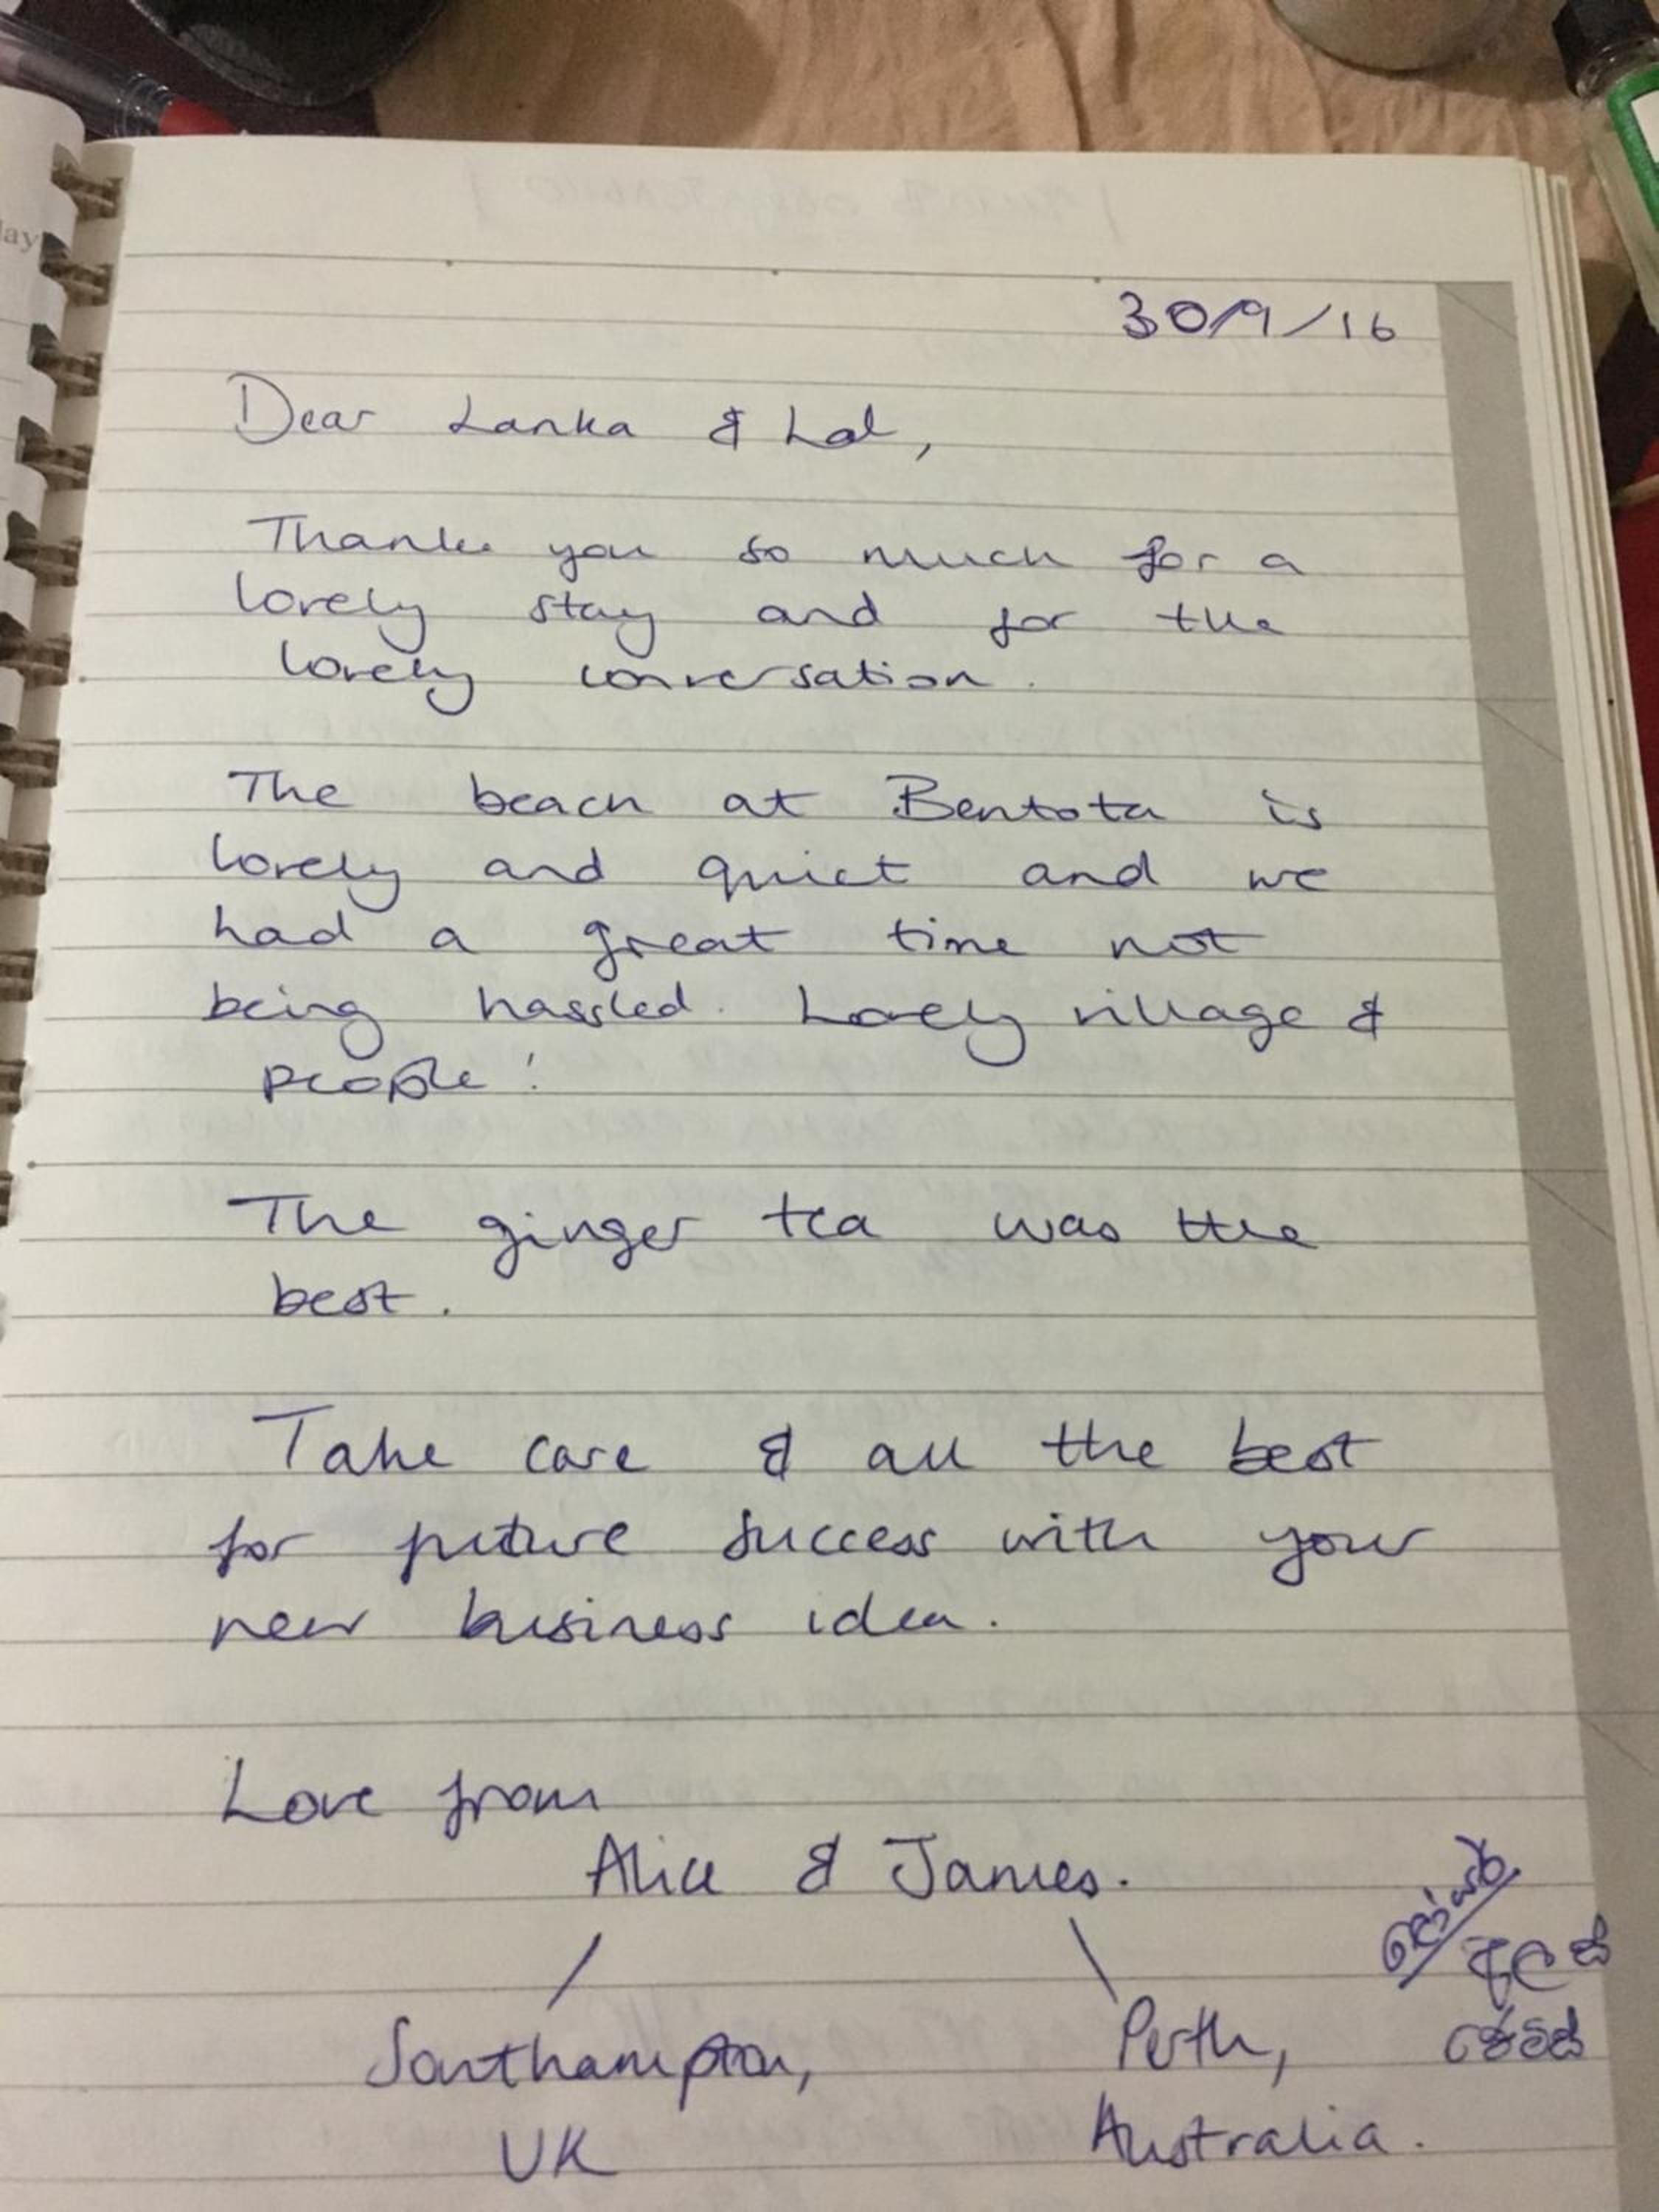 30/9/16
Dear Lanka & Lal,
Thank you so much for a
lovely stay and for the
lovely conversation.
The beach at Bentota is
lovely and quiet and we
had a great time not
being hassled. Lovely village &
people!
The ginger tea was the
best.
Take care & all the best
for future success with your
new business idea.
Love from
Alice & James.
Southampton,
UK
Perth,
Australia.